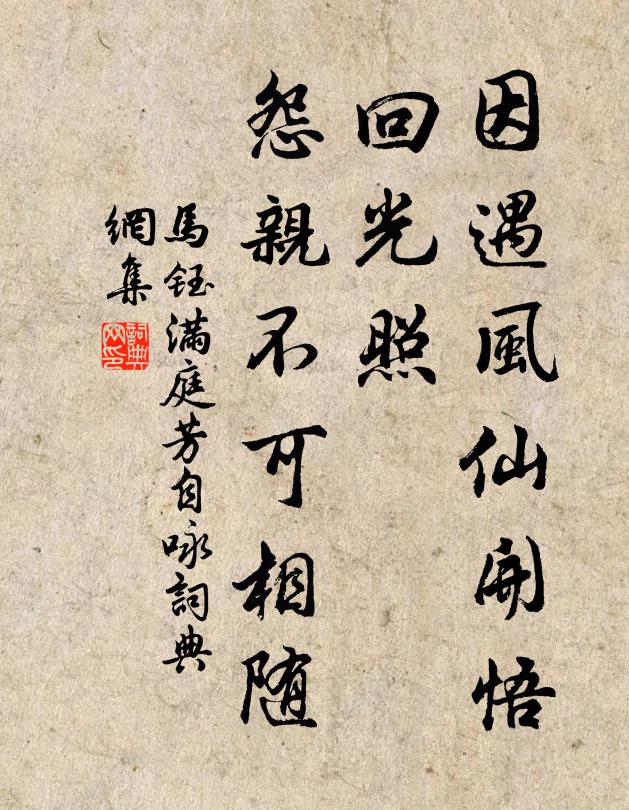 因遇風仙開悟
回光照
怨親不可相随
馬鈺满庭芳自咏詞典
網集
詞典
网印